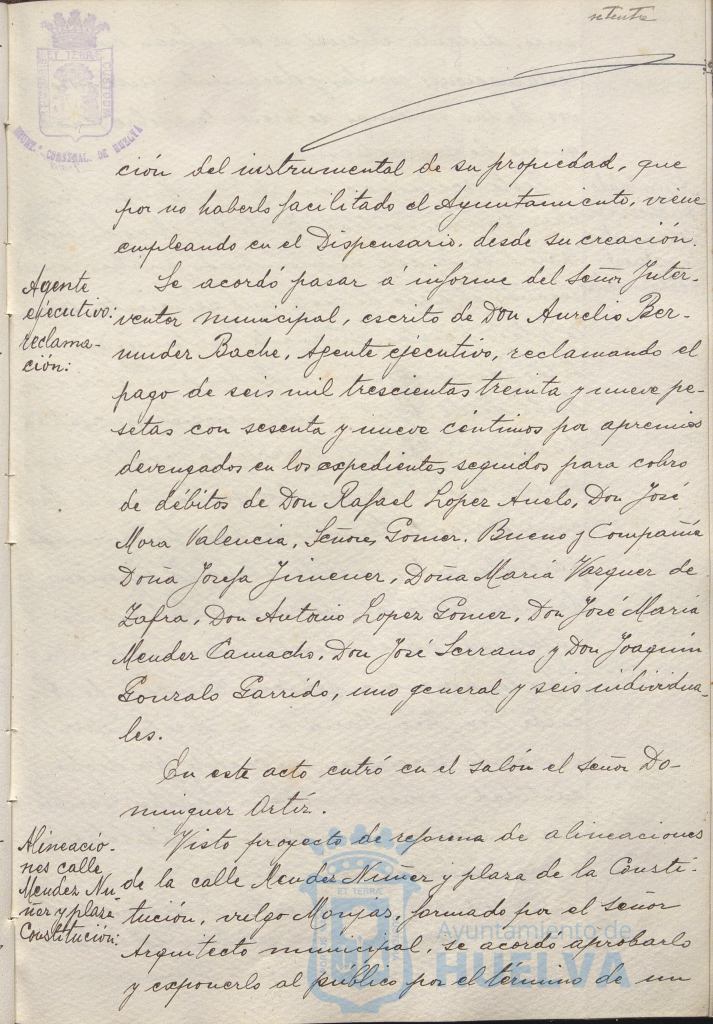 setenta
ET TERRÆ
CUSTODIA
AYUNT.º CONSTNAL. DE HUELVA
ción del instrumental de su propiedad, que
por no haberlo facilitado el Ayuntamiento, viene
empleando en el Dispensario, desde su creación.
Agente
ejecutivo:
reclama-
ción:
Se acordó pasar á informe del señor Inter-
ventor municipal, escrito de Don Aurelio Ber-
mudez Bache, Agente ejecutivo, reclamando el
pago de seis mil trescientas treinta y nueve pe-
setas con sesenta y nueve céntimos por apremios
devengados en los expedientes seguidos para cobro
de débitos de Don Rafael Lopez Avelo, Don José
Mora Valencia, Señores Gomez, Bueno y Compañía
Doña Josefa Jimenez, Doña María Vazquez de
Zafra, Don Antonio Lopez Gomez, Don José María
Mendez Camacho, Don José Serrano y Don Joaquin
Gonzalo Garrido, uno general y seis individua-
les.
En este acto entró en el salón el señor Do-
minguez Ortiz.
Alineacio-
nes calle
Mendez Nu-
ñez y plaza
Constitución:
Visto proyecto de reforma de alineaciones
de la calle Mendez Nuñez y plaza de la Consti-
tución, vulgo Monjas, formado por el señor
Arquitecto municipal, se acordó aprobarlo
y exponerlo al público por el término de un
ET TERRÆ
Ayuntamiento de
HUELVA